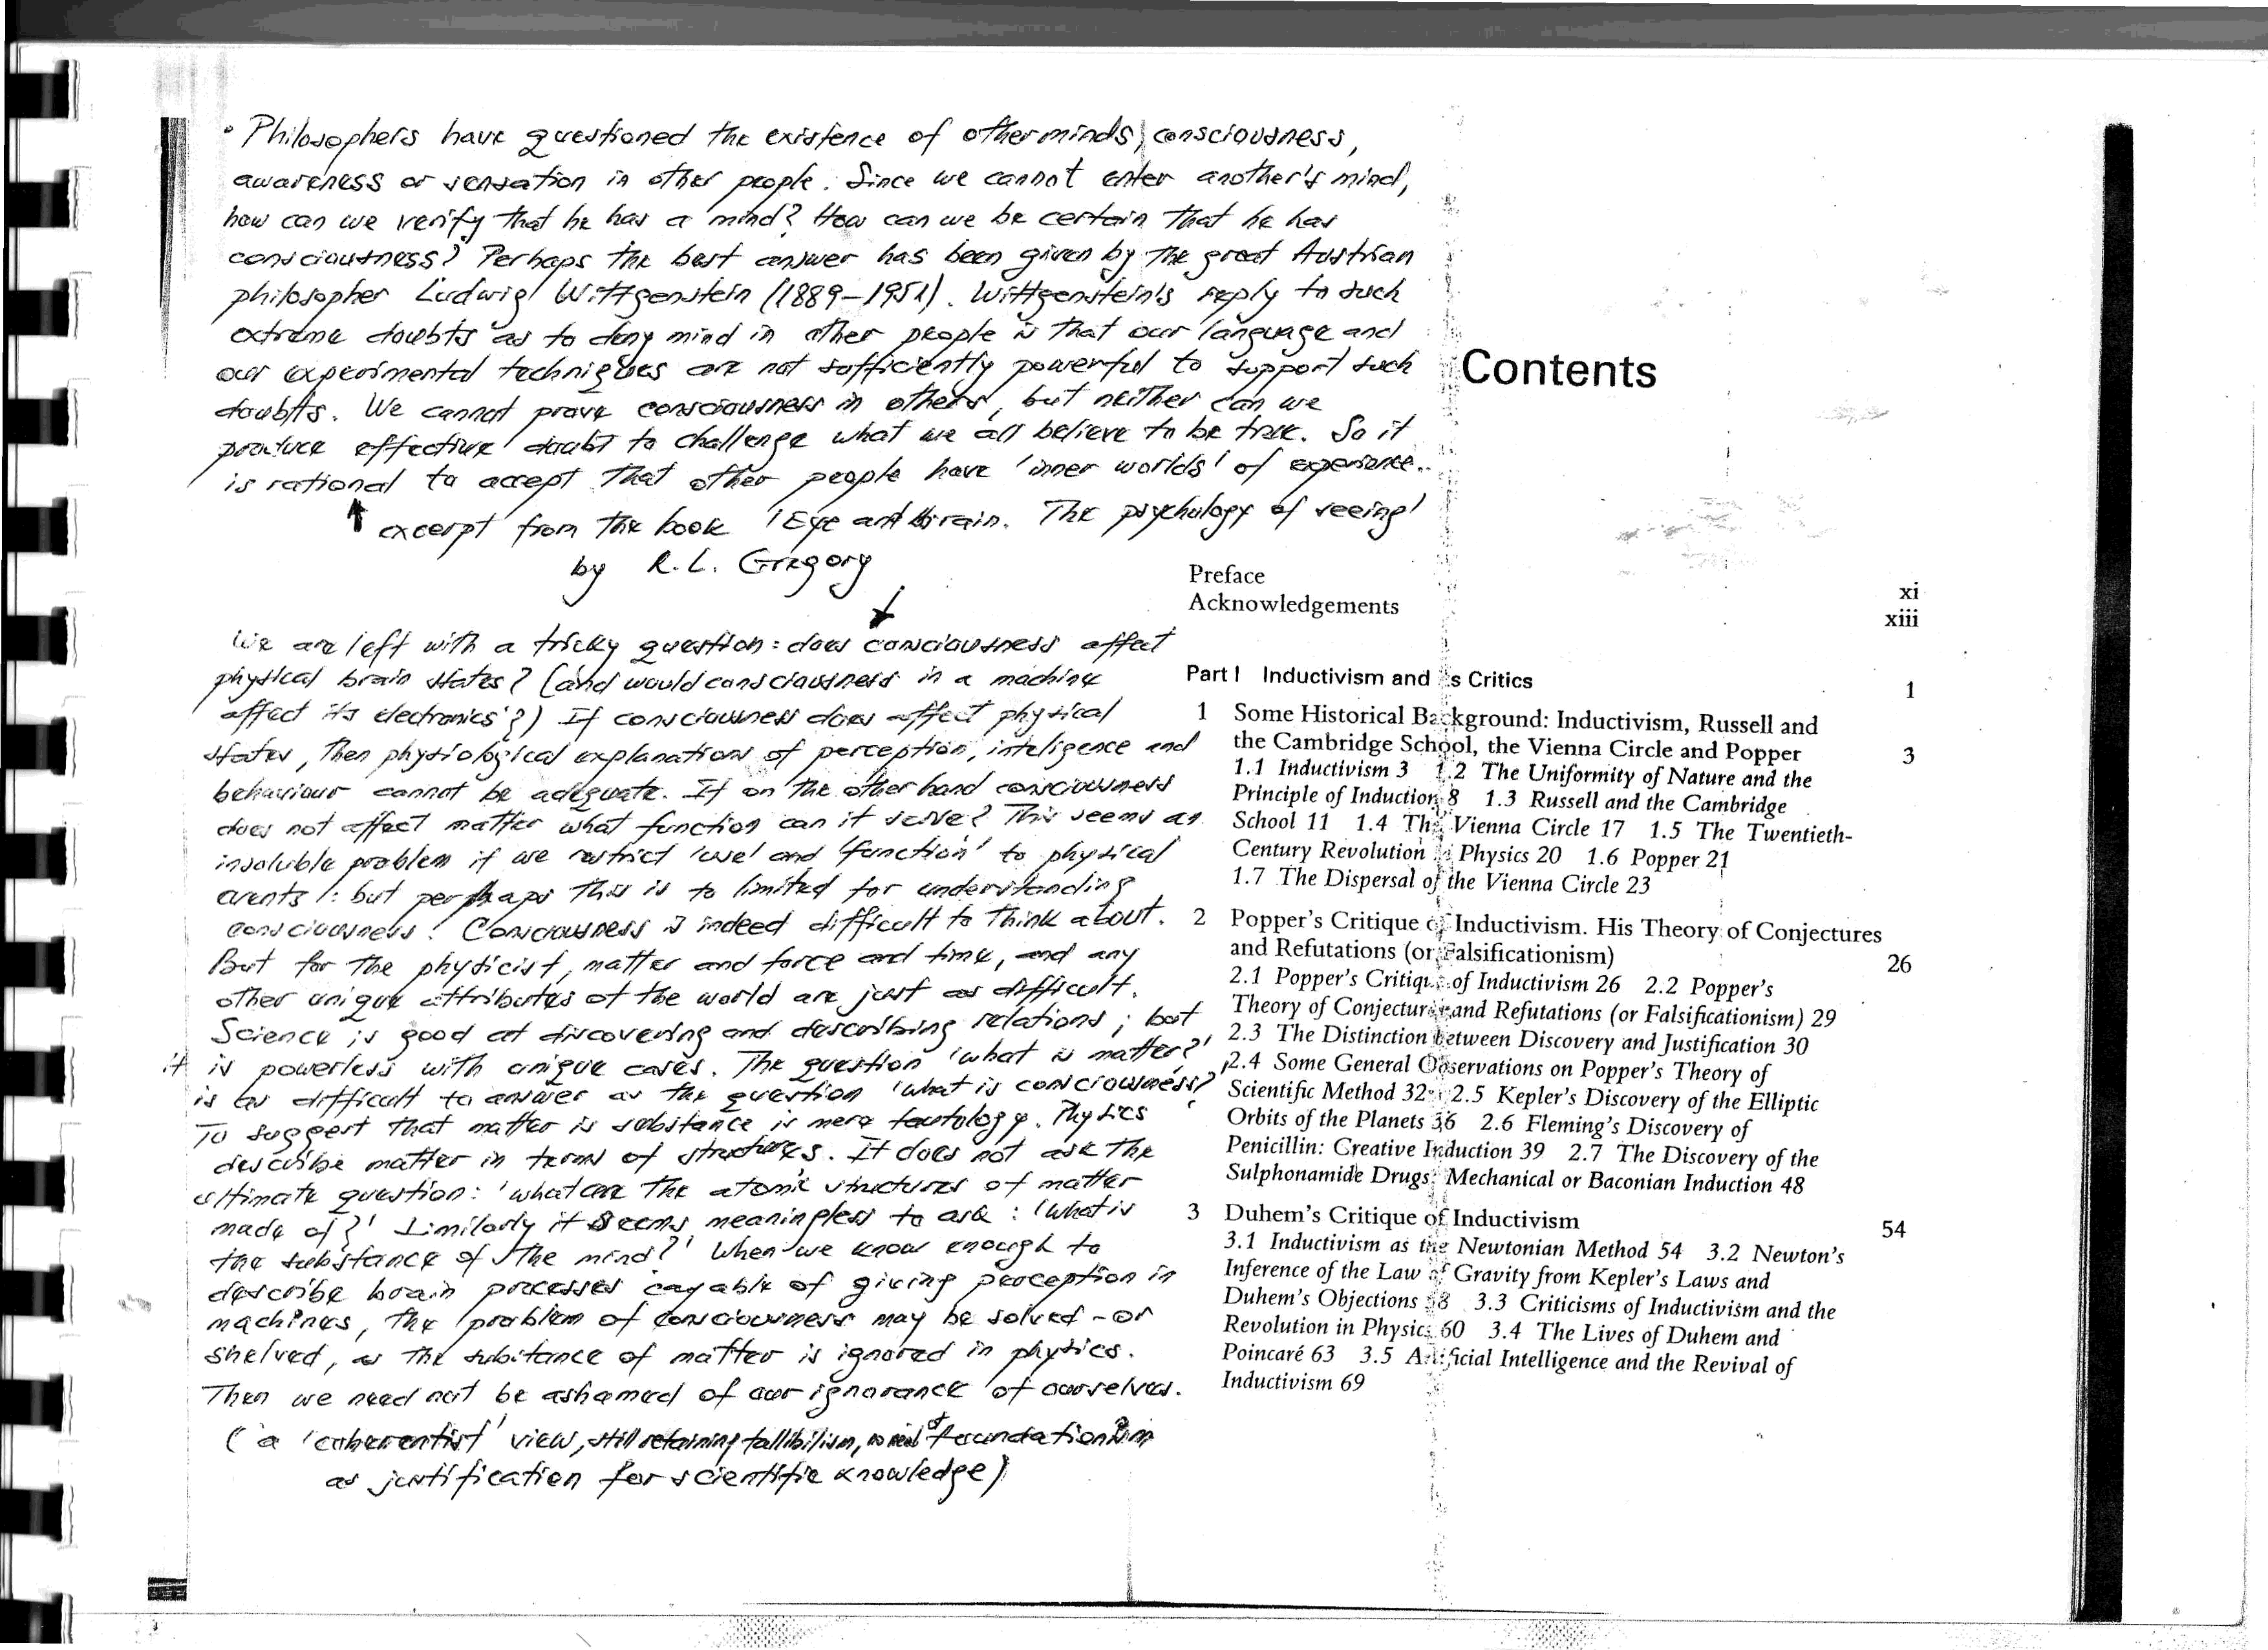 • Philosophers have questioned the existence of other minds, consciousness,
awareness or sensation in other people. Since we cannot enter another's mind,
how can we verify that he has a mind? How can we be certain that he has
consciousness? Perhaps the best answer has been given by the great Austrian
philosopher Ludwig Wittgenstein (1889-1951). Wittgenstein's reply to such
extreme doubts as to deny mind in other people is that our language and
our experimental techniques are not sufficiently powerful to support such
doubts. We cannot prove consciousness in others, but neither can we
produce effective doubt to challenge what we all believe to be true. So it
is rational to accept that other people have 'inner worlds' of experience..
excerpt from the book 'Eye and brain. The psychology of seeing'
by R.L. Gregory
We are left with a tricky question: does consciousness affect
physical brain states? (and would consciousness in a machine
affect its electronics?) If consciousness does affect physical
states, then physiological explanations of perception, inteligence and
behaviour cannot be adequate. If on the other hand consciousness
does not affect matter what function can it serve? This seems an
insoluble problem if we restrict 'use' and 'function' to physical
events!: but perhaps this is to limited for understanding
consciousness! Consciousness is indeed difficult to think about.
But for the physicist, matter and force and time, and any
other unique attributes of the world are just as difficult.
Science is good at discovering and describing relations; but
it is powerless with unique cases. The question 'what is matter?'
is as difficult to answer as the question 'what is consciousness?'
To suggest that matter is substance is mere tautology. Physics
describe matter in terms of structures. It does not ask the
ultimate question: 'what are the atomic structures of matter
made of?' Similarly it seems meaningless to ask: 'what is
the substance of the mind?' When we know enough to
describe brain processes capable of giving perception in
machines, the problem of consciousness may be solved - or
shelved, as the substance of matter is ignored in physics.
Then we need not be ashamed of our ignorance of ourselves.
(a 'coherentist' view, still retaining fallibilism, no need of foundationism
as justification for scientific knowledge)
Contents
Preface xi
Acknowledgements xiii
Part I Inductivism and its Critics 1
1 Some Historical Background: Inductivism, Russell and
the Cambridge School, the Vienna Circle and Popper 3
1.1 Inductivism 3 1.2 The Uniformity of Nature and the
Principle of Induction 8 1.3 Russell and the Cambridge
School 11 1.4 The Vienna Circle 17 1.5 The Twentieth-
Century Revolution in Physics 20 1.6 Popper 21
1.7 The Dispersal of the Vienna Circle 23
2 Popper's Critique of Inductivism. His Theory of Conjectures
and Refutations (or Falsificationism) 26
2.1 Popper's Critique of Inductivism 26 2.2 Popper's
Theory of Conjectures and Refutations (or Falsificationism) 29
2.3 The Distinction between Discovery and Justification 30
2.4 Some General Observations on Popper's Theory of
Scientific Method 32 2.5 Kepler's Discovery of the Elliptic
Orbits of the Planets 36 2.6 Fleming's Discovery of
Penicillin: Creative Induction 39 2.7 The Discovery of the
Sulphonamide Drugs: Mechanical or Baconian Induction 48
3 Duhem's Critique of Inductivism 54
3.1 Inductivism as the Newtonian Method 54 3.2 Newton's
Inference of the Law of Gravity from Kepler's Laws and
Duhem's Objections 58 3.3 Criticisms of Inductivism and the
Revolution in Physics 60 3.4 The Lives of Duhem and
Poincaré 63 3.5 Artificial Intelligence and the Revival of
Inductivism 69